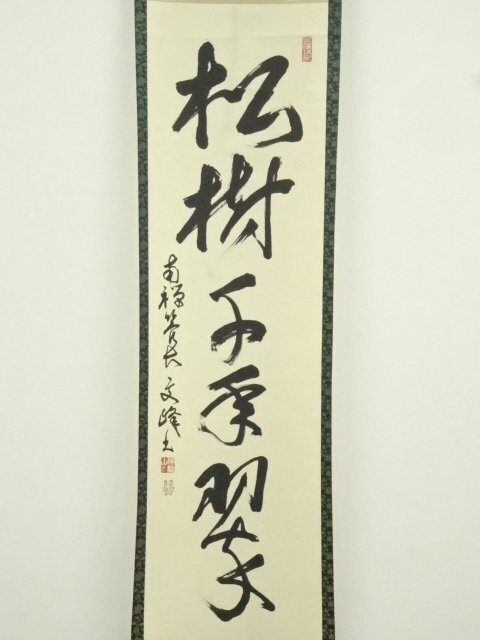 松樹千年翠
南禅管長 文峰書